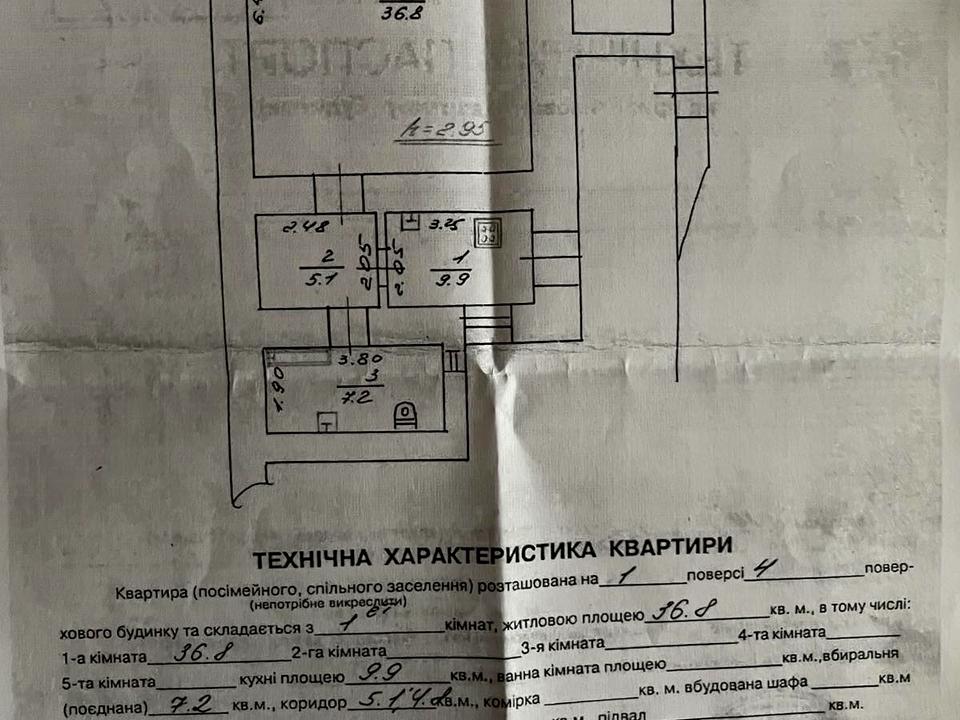 36.8
h=2.95
2.48
3.25
2
5.1
2.05
2.05
1
9.9
3.80
1.90
3
7.2
ТЕХНІЧНА ХАРАКТЕРИСТИКА КВАРТИРИ
Квартира (посімейного, спільного заселення) розташована на 1 поверсі 4 повер-
(непотрібне викреслити)
хового будинку та складається з 1 кімнат, житловою площею 36.8 кв. м., в тому числі:
1-а кімната 36.8 2-га кімната 3-я кімната 4-та кімната
5-та кімната кухні площею 9.9 кв.м., ванна кімната площею кв.м.,вбиральня
(поєднана) 7.2 кв.м., коридор 5.1 кв.м., комірка кв. м. вбудована шафа кв.м
кв.м., підвал кв.м.